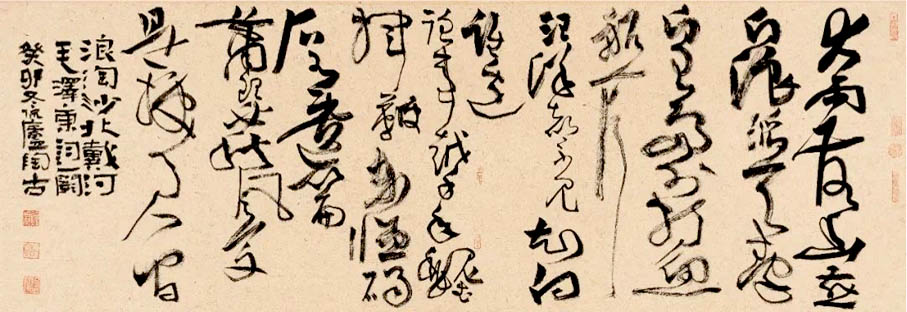 大雨落幽燕
白浪滔天秦
皇島外打魚
船一片
汪洋都不見知向
誰邊
往事越千年魏武
揮鞭東临碣
石有遺篇
蕭瑟秋風今又
是換了人間
浪淘沙北戴河
毛澤東詞一闋
癸卯冬廬陶古